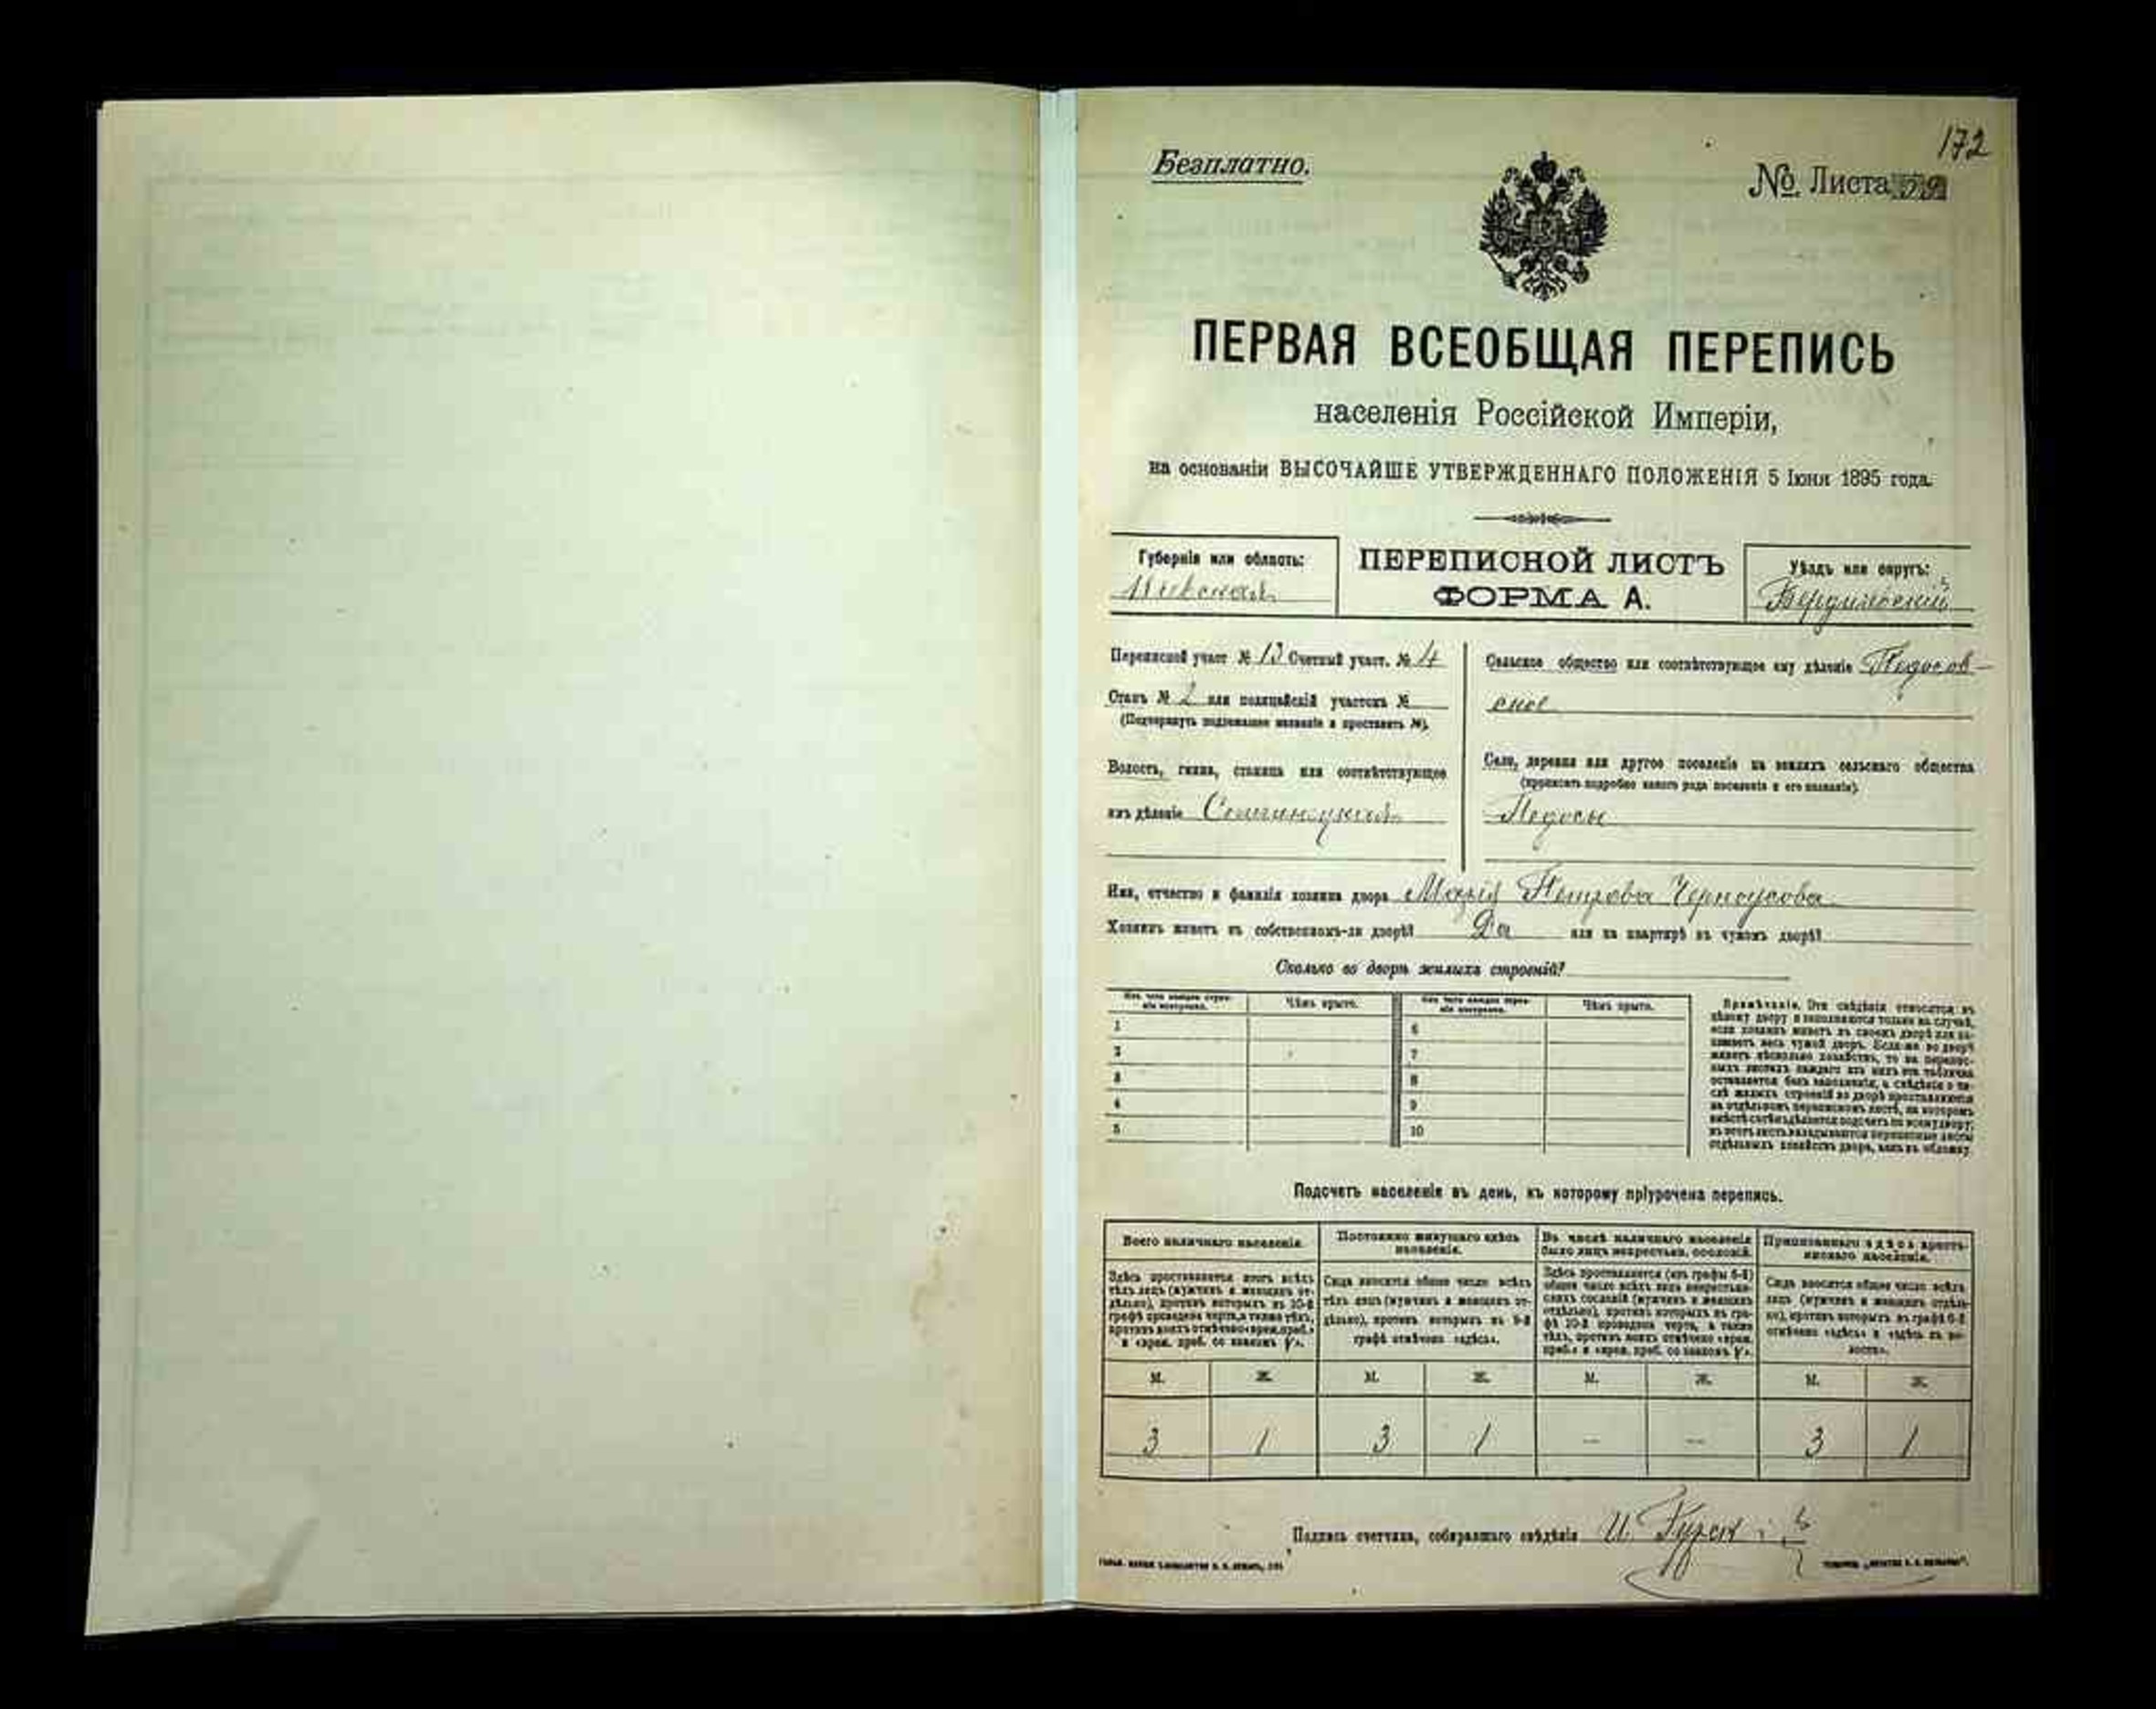 172
Безплатно.
№ Листа
ПЕРВАЯ ВСЕОБЩАЯ ПЕРЕПИСЬ
населенія Россійской Имперіи,
на основаніи ВЫСОЧАЙШЕ УТВЕРЖДЕННАГО ПОЛОЖЕНІЯ 5 Іюня 1895 года.
Губернія или область:
Кіевская
ПЕРЕПИСНОЙ ЛИСТЪ
ФОРМА А.
Уѣздъ или округъ:
Бердичевскій
Переписной участ № 13 Счетный участ. № 4
Станъ № 2 или полицейскій участокъ №
(Подчеркнуть подлежащее названіе и проставить №).
Волость, гмина, станица или соотвѣтствующее
имъ дѣленіе
Сельское общество или соотвѣтствующее ему дѣленіе Педосов-
ское
Село, деревня или другое поселеніе на земляхъ сельскаго общества
(прописать подробно какого рода поселеніе и его названіе).
Педосы
Имя, отчество и фамилія хозяина двора Марія Петрова Черноусова
Хозяинъ живетъ въ собственномъ-ли дворѣ? Да или на квартирѣ въ чужомъ дворѣ?
Сколько во дворѣ жилыхъ строеній?
Изъ чего каждое строе-
ніе построено.
Чѣмъ крыто.
Изъ чего каждое строе-
ніе построено.
Чѣмъ крыто.
1
6
2
7
3
8
4
9
5
10
Примѣчаніе. Эти свѣдѣнія относятся къ
цѣлому двору и заполняются только въ случаѣ,
если хозяинъ живетъ въ своемъ дворѣ или за-
нимаетъ весь чужой дворъ. Если-же во дворѣ
живетъ нѣсколько хозяйствъ, то на перепис-
ныхъ листахъ каждаго изъ нихъ эта табличка
оставляется безъ заполненія, а свѣдѣнія о чи-
слѣ жилыхъ строеній во дворѣ проставляются
на отдѣльномъ переписномъ листѣ, на которомъ
вмѣстѣ съ тѣмъ дѣлается подсчетъ по всему двору;
въ этотъ листъ вкладываются переписные листы
отдѣльныхъ хозяйствъ двора, какъ въ обложку.
Подсчетъ населенія въ день, къ которому пріурочена перепись.
Всего наличнаго населенія.
Постоянно живущаго здѣсь
населенія.
Въ числѣ наличнаго населенія
было лицъ некрестьянск. сословій.
Приписаннаго здѣсь кресть-
янскаго населенія.
Здѣсь проставляется итогъ всѣхъ
тѣхъ лицъ (мужчинъ и женщинъ от-
дѣльно), противъ которыхъ въ 10-й
графѣ проведена черта, а также тѣхъ,
противъ коихъ отмѣчено «врем. преб.»
и «врем. преб. со знакомъ V».
Сюда вносится общее число всѣхъ
тѣхъ лицъ (мужчинъ и женщинъ от-
дѣльно), противъ которыхъ въ 9-й
графѣ отмѣчено «здѣсь».
Здѣсь проставляется (изъ графы 6-й)
общее число всѣхъ лицъ некрестьян-
скихъ сословій (мужчинъ и женщинъ
отдѣльно), противъ которыхъ въ гра-
фѣ 10-й проведена черта, а также
тѣхъ, противъ коихъ отмѣчено «врем.
преб.» и «врем. преб. со знакомъ V».
Сюда вносится общее число всѣхъ
лицъ (мужчинъ и женщинъ отдѣль-
но), противъ которыхъ въ графѣ 8-й
отмѣчено «здѣсь» и «здѣсь въ во-
лости».
М. Ж. М. Ж. М. Ж. М. Ж.
3 1 3 1 — — 3 1
Подпись счетчика, собиравшаго свѣдѣнія И.